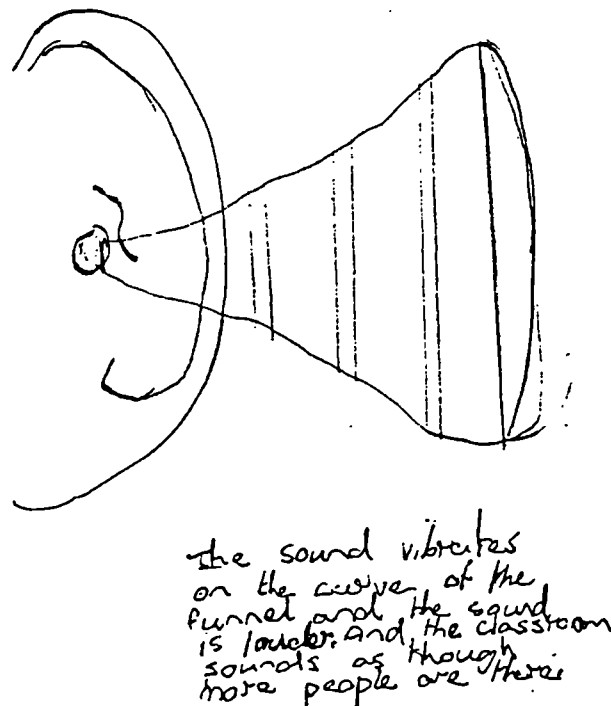 The sound vibrates
on the curve of the
funnel and the sound
is louder. And the classroom
sounds as though
more people are there